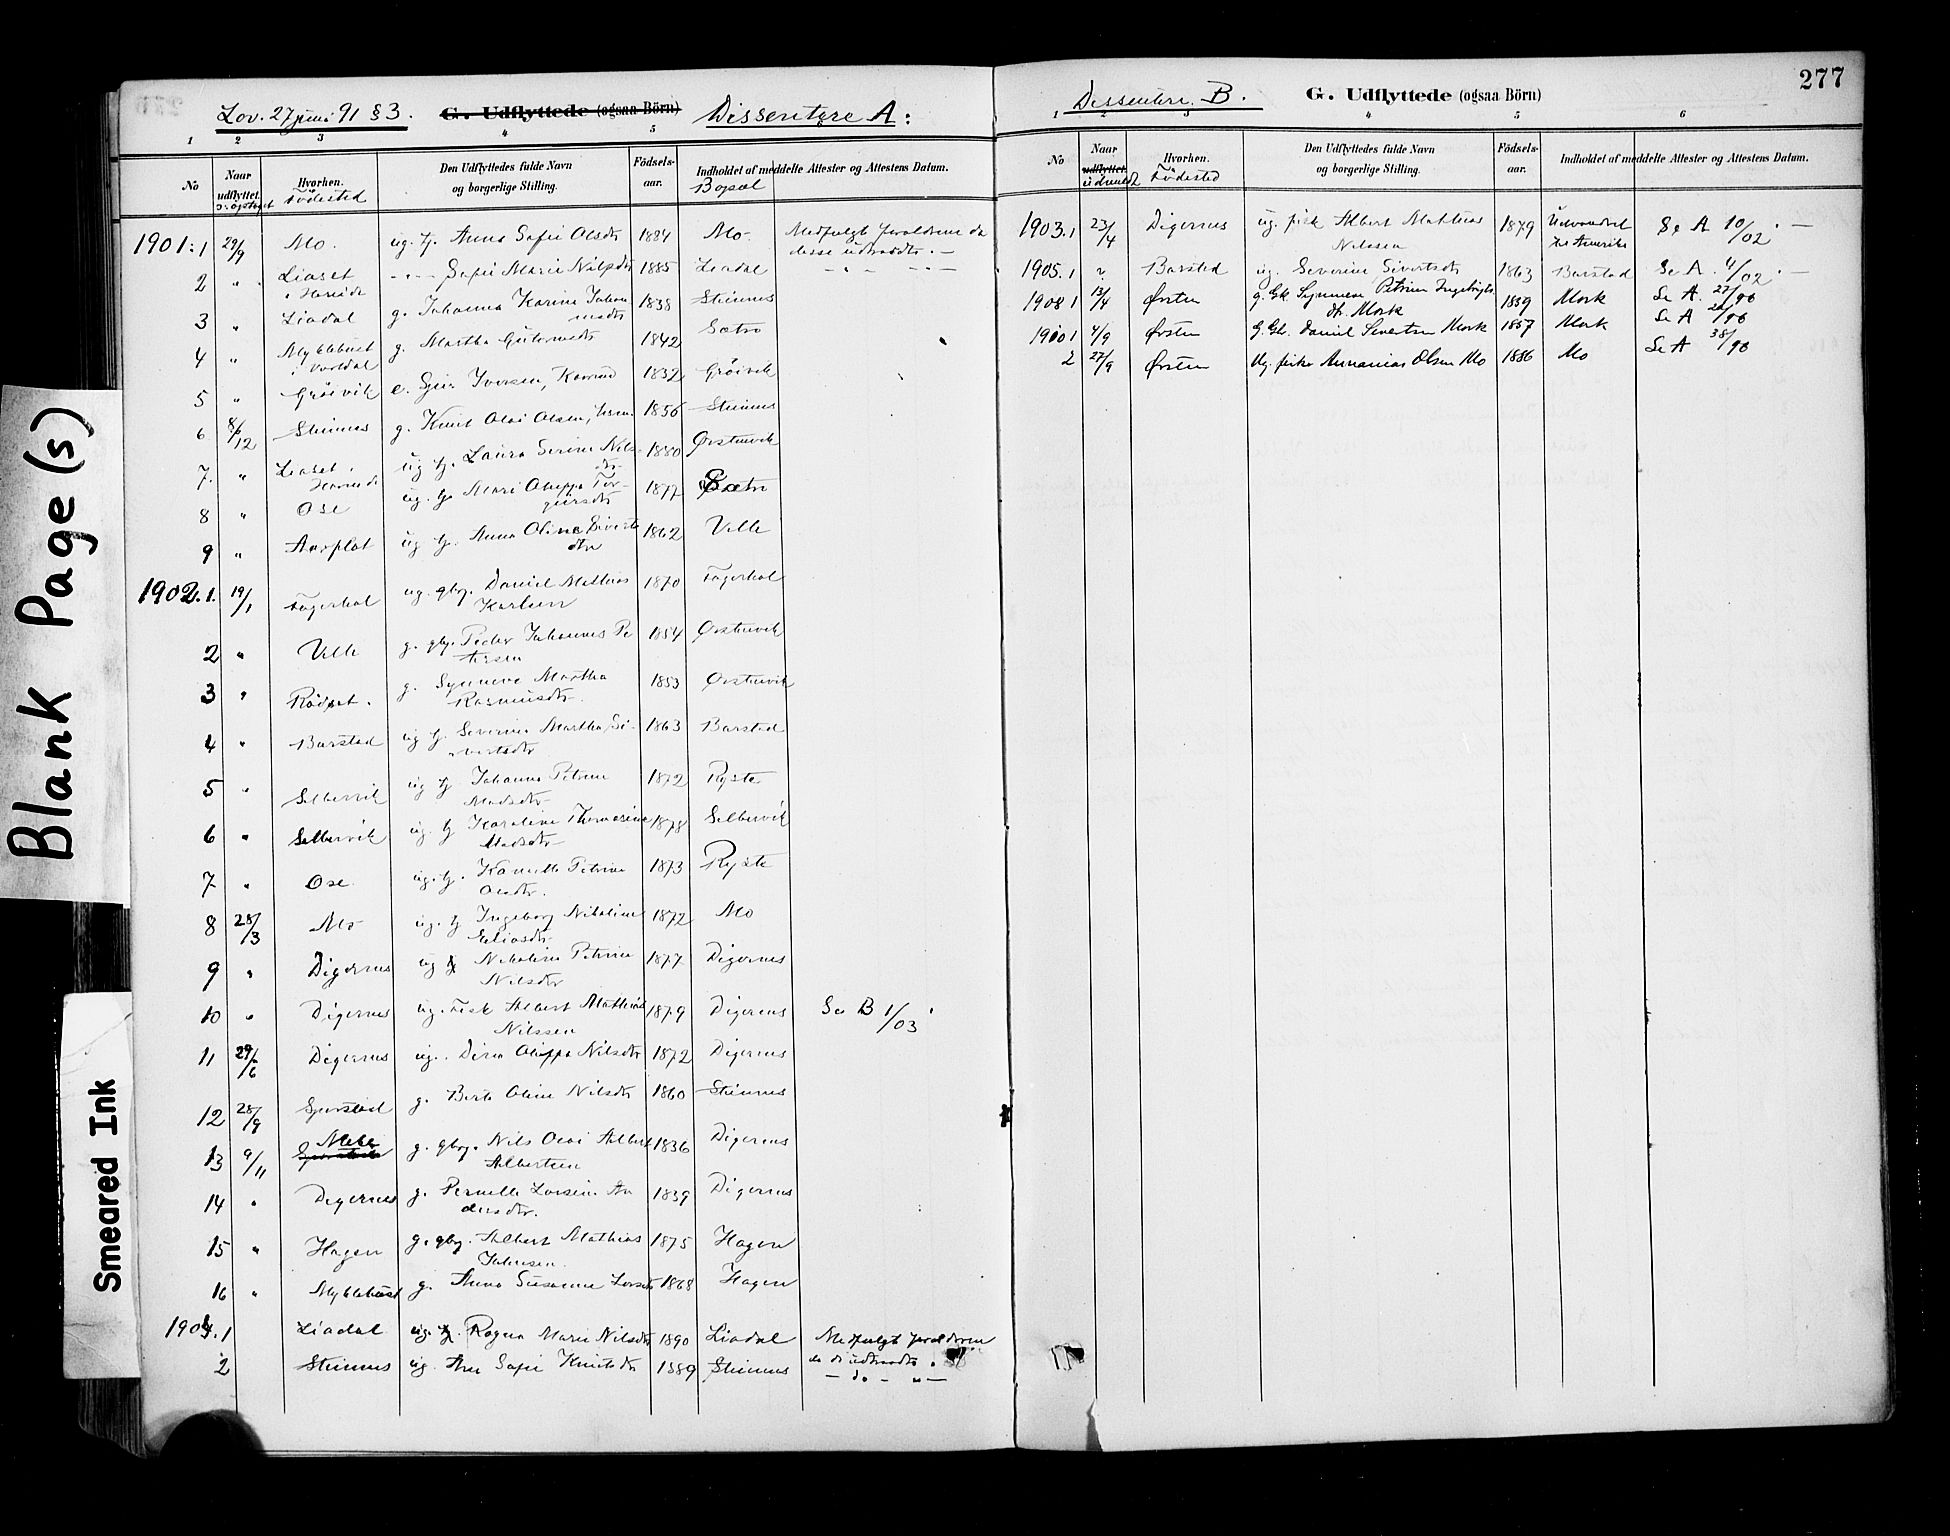 Blank Page(s)
Smeared Ink
Lov. 27 juni 91 § 3. G. Udflyttede (ogsaa Börn) Dissentere A:
1 2 3 4 5
No
Naar udflyttet.
Hvorhen. Födested
Den Udflyttedes fulde Navn og borgerlige Stilling.
Födsels-aar.
Indholdet af meddelte Attester og Attestens Datum.
Bopæl
1901: 1 29/9 Mo. ug. tj. Anna Sofie Olsdtr 1884 Mo. Medfulgt forældrene da disse udtraadte. —
2 " Liaset i Hareide - - - Sofie Marie Nilsdtr 1885 Liadal
3 " Liadal g. Johanna Karine Johannesdtr 1838 Steinnes
4 " Myklebust i Vartdal g. Martha Guttormsdtr 1842 Sætre
5 " Gröivik e. Iversen, 1832 Gröivik
6 8/12 Steinnes g. Knut Olai Olsen, 1856 Steinnes
7. " Liaset, Hareide ug tj. Laura Serine Nilsdtr. 1880 Ørstenvik
8 " Ose ug. tj. Mari Oluffa 1877 Sætre
9 " Aarflot ug tj. Anna Oline Sivertsdtr 1862 Velle
1902. 1. 19/1 Fagerhol ug. gbrg. Daniel Mathias Karlsen 1870 Fagerhol
2 " Velle g. gbr. Peder Johannes Petersen 1854 Ørstenvik
3 " Rödset. g. Synneve Martha Rasmusdtr. 1853 Ørstenvik
4 " Barstad ug tj. Severine Martha Sivertsdtr 1863 Barstad
5 " Selbervik ug tj Johanna Petrine Madsdtr 1872 Ryste
6 " Selbervik ug. tj Karoline Thomasine Madsdtr 1878 Selbervik
7 " Ose ug. tj. Kornelle Petrine Olsdtr. 1873 Ryste
8 28/3 Mo ug. tj Ingeborg Nikoline Eliasdtr 1872 Mo
9 " Digernes ug tj Nikoline Petrine Nilsdtr 1877 Digernes
10 " Digernes ug. Fisk Albert Mathias Nilssen 1879 Digernes Se B 1/03
11 29/6 Digernes ug. Dina Oluffa Nilsdtr 1872 Digernes
12 28/9 g. Berte Oline Nilsdtr 1860 Steinnes
13 9/11 g. gbrg. Nils Olai Albert Albertsen 1836 Digernes
14 " Digernes g. Pernelle Lovise Andersdtr. 1839 Digernes
15 " Hagen g. gbrg. Albert Mathias Johnsen. 1875 Hagen
16 " Myklebust g. Anna Susanne Larsdtr 1868 Hagen
1904. 1 Liadal ug. tj. Ragna Marie Nilsdtr 1890 Liadal Medfulgt forældrene da de udtraadte.
2 Steinnes ug. Ane Sofie Knutsdtr 1889 Steinnes — do — " —
277
Dissentere B. G. Udflyttede (ogsaa Börn)
1 2 3 4 5 6
No
Naar udflyttet. udmeldt
Hvorhen. Födested
Den Udflyttedes fulde Navn og borgerlige Stilling.
Födsels-aar.
Indholdet af meddelte Attester og Attestens Datum.
1903. 1 23/4 Digernes ug. fisk Albert Mathias Nilssen 1879 Udvandret til Amerika Se A 10/02. —
1905. 1 ? Barstad ug. Severine Sivertsdtr 1863 Barstad Se A. 4/02. —
1908 1 13/4 Ørsten g. Gk Synneve Petrine Ingebrigts dt. Mork 1859 Mork Se A. 27/98
1910 1 4/9 Ørsten G. Gbr. Daniel Sivertsen Mork 1857 Mork Se A 26/98
2 27/9 Ørsten Ug. fisker Annanias Olsen Mo 1886 Mo Se A 38/98